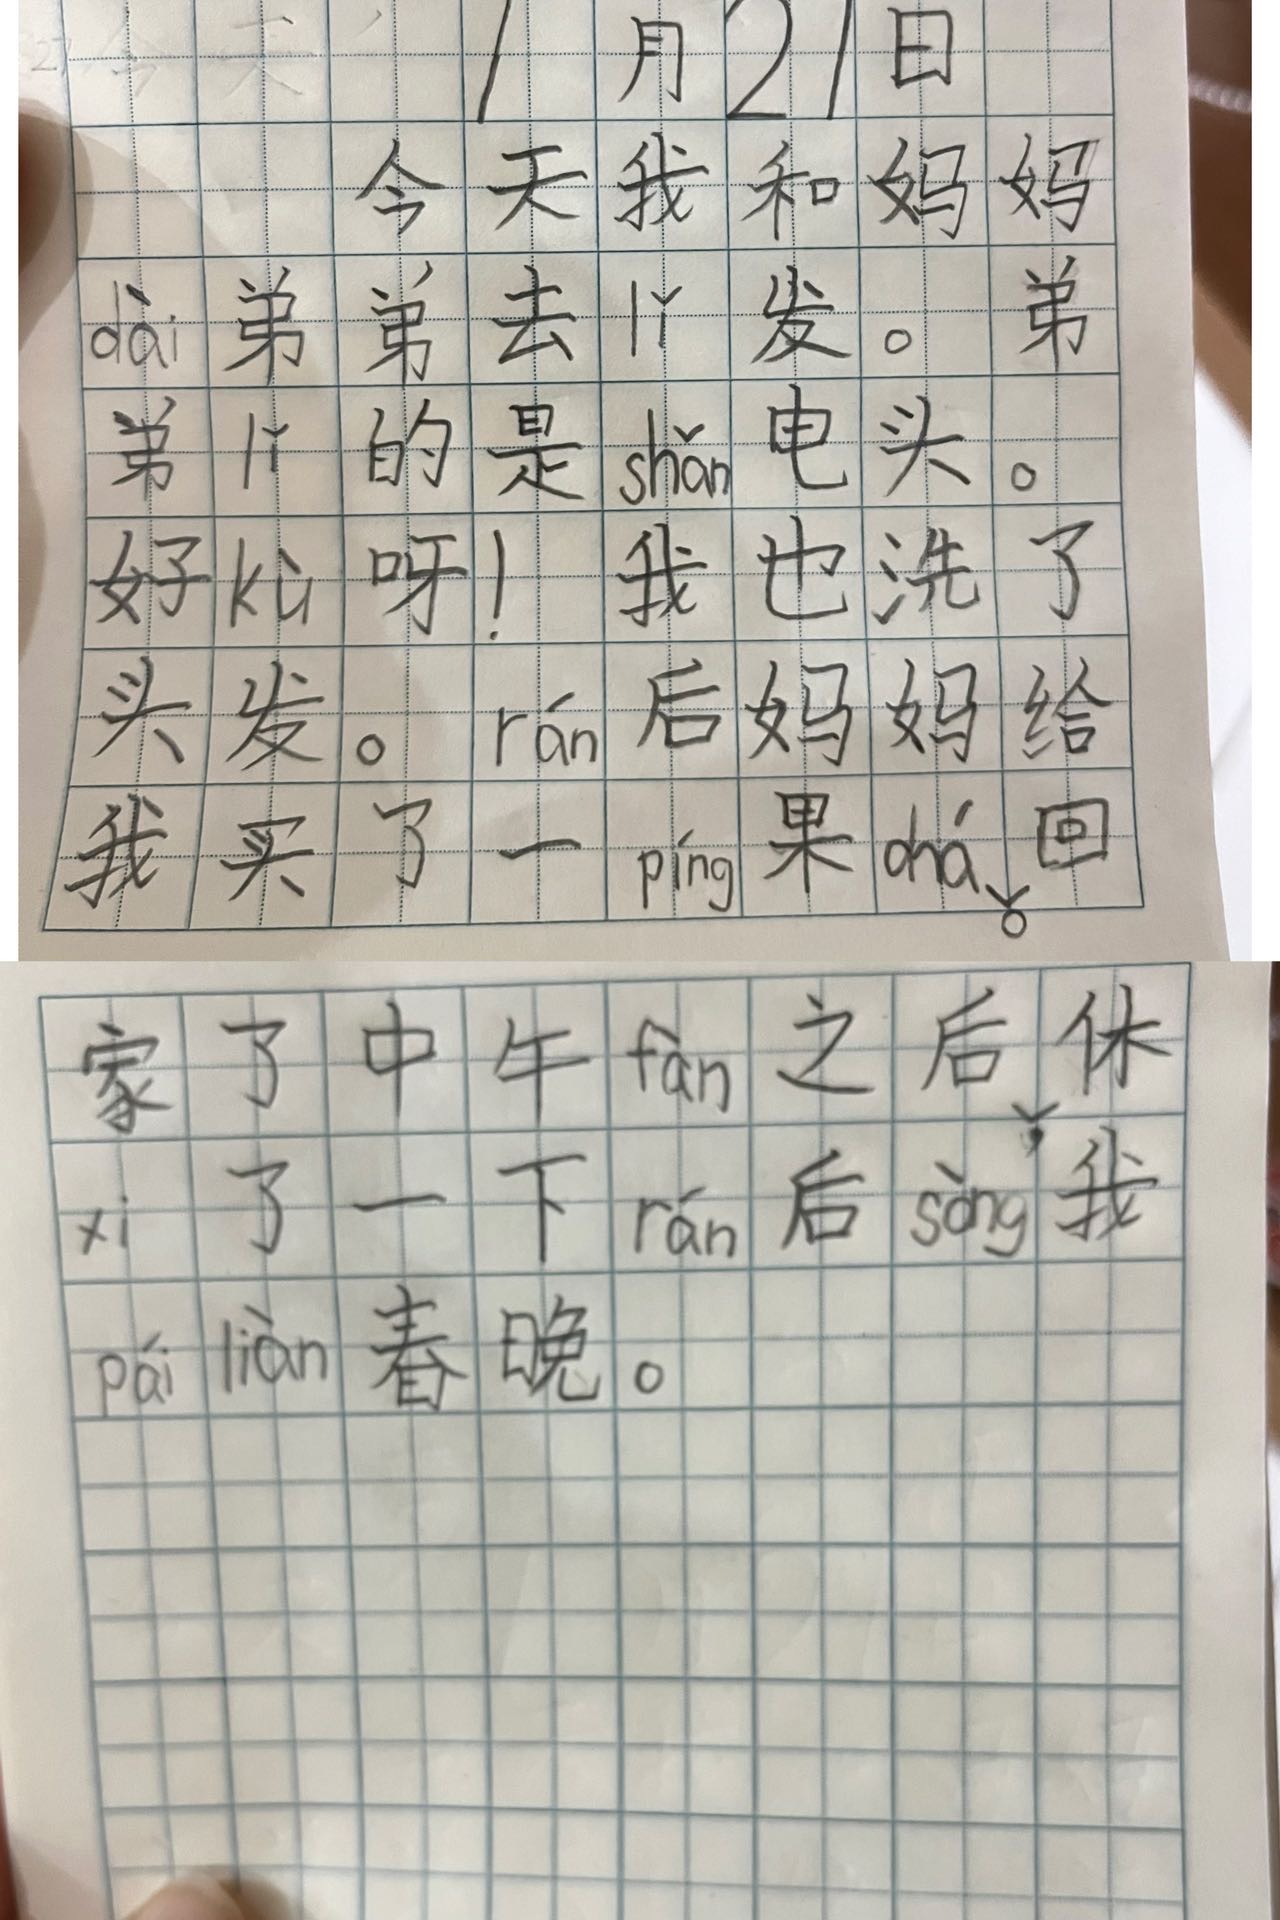 1月21日
今天我和妈妈
dài弟弟去lǐ发。弟
弟lǐ的是shǎn电头。
好kù呀！我也洗了
头发。rán后妈妈给
我买了一píng果chá。回
家了中午fàn之后，休
xi了一下rán后sòng我
pái liàn春晚。